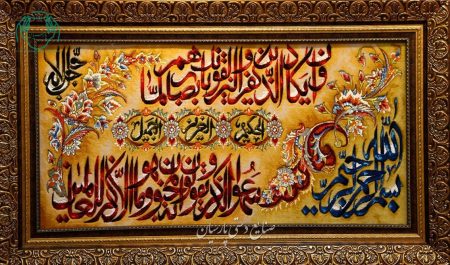 بسم الله الرحمن الرحیم
وان یکاد الذین کفروا لیزلقونک بابصارهم لما
جل جلاله
الجمیل العزیز الحکیم
سمعوا الذکر و یقولون انه لمجنون و ما هو الا ذکر للعالمین
صنایع دستی پارسیان